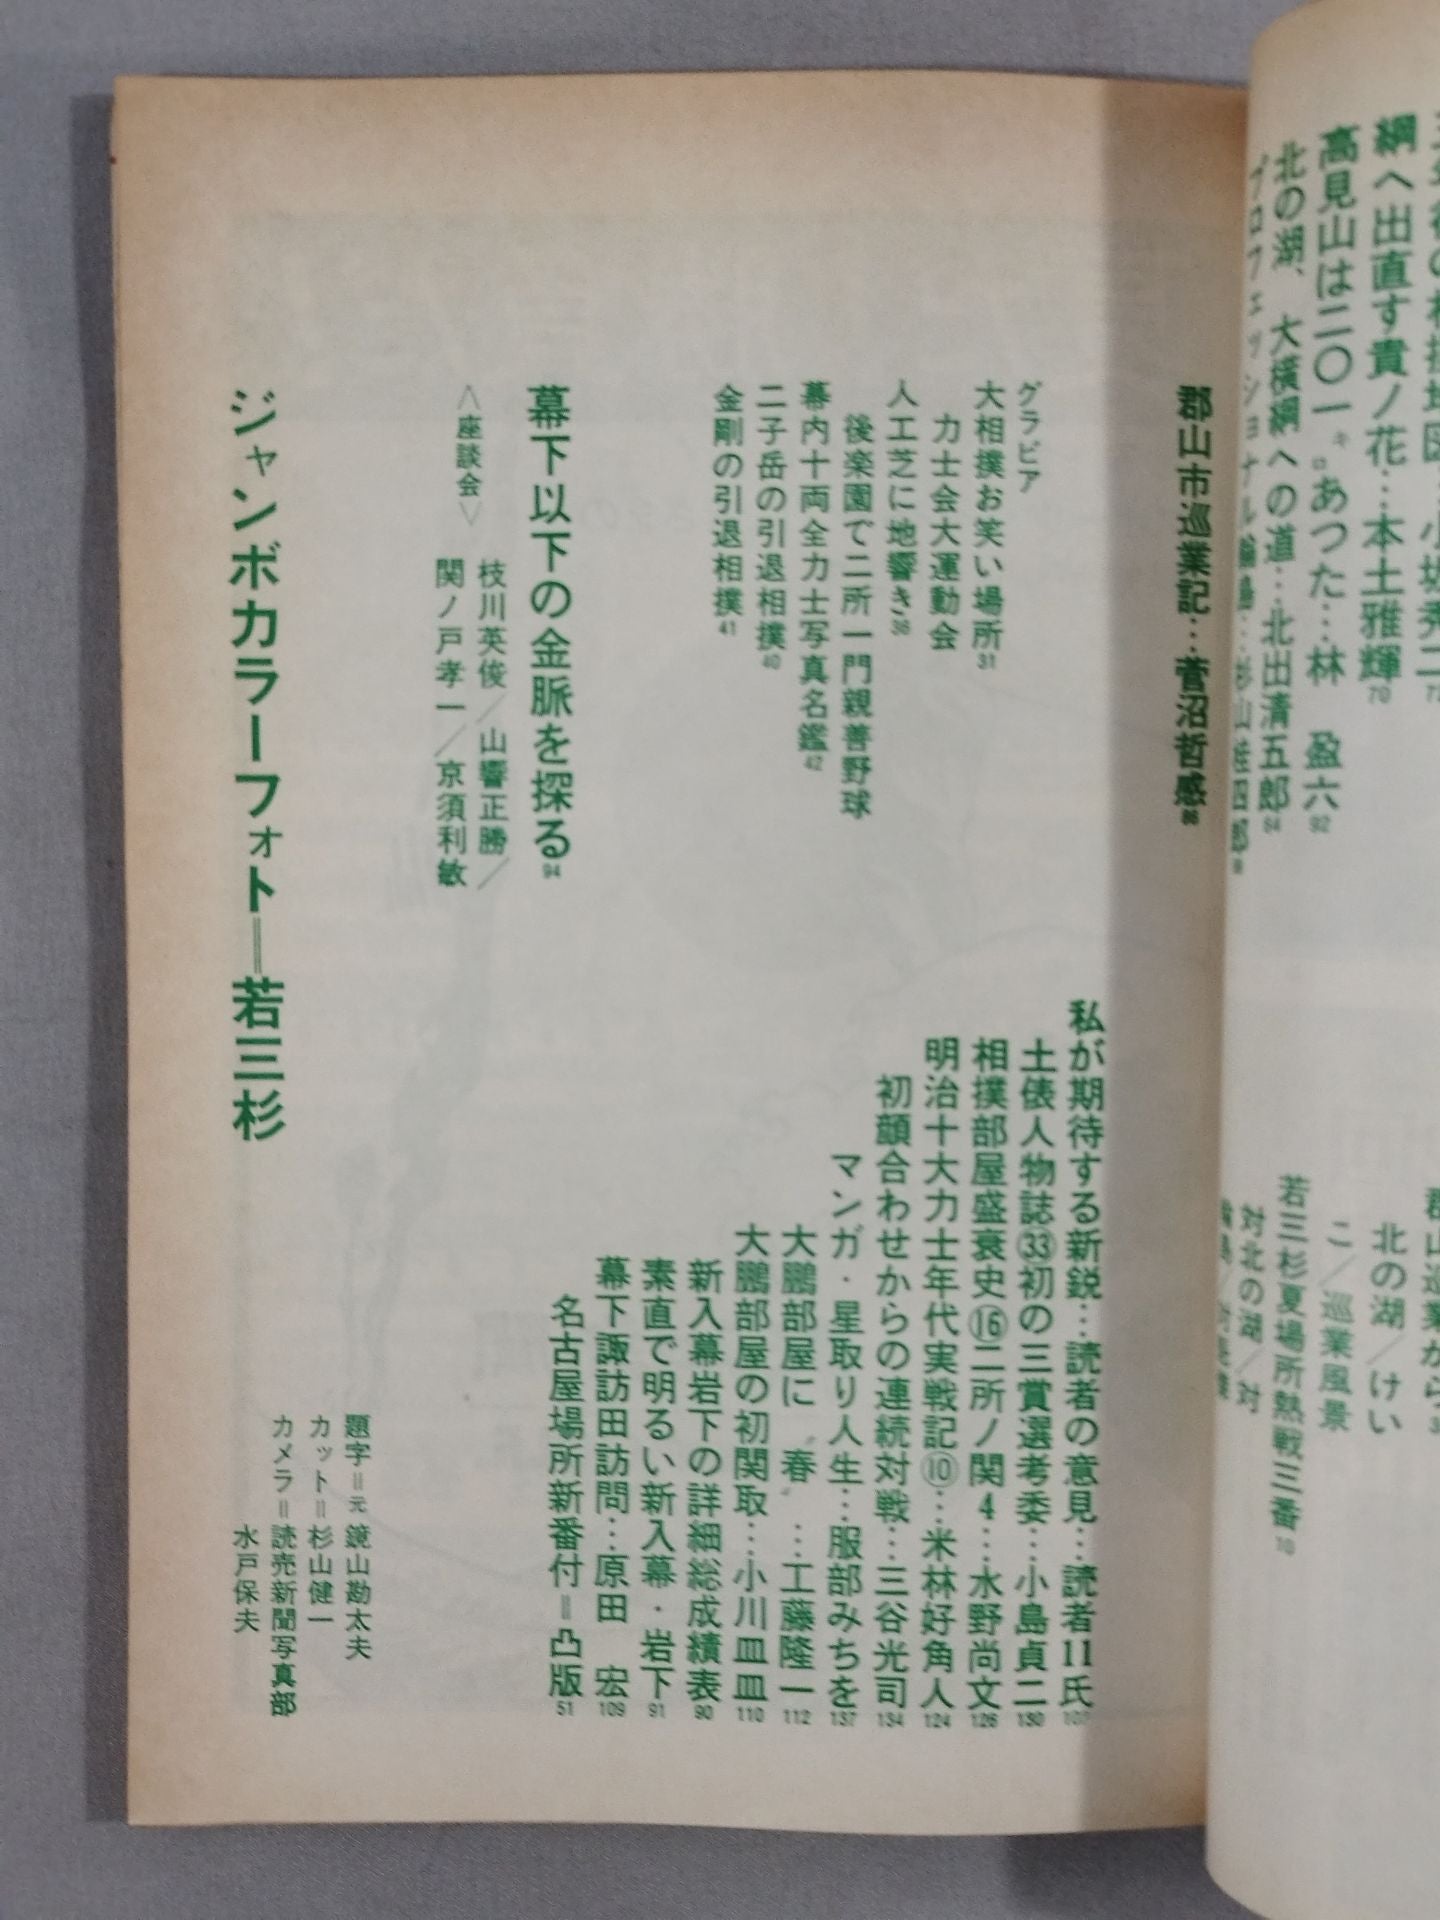 綱へ出直す貴ノ花…本土雅輝 70
高見山は二〇一㌔あつた…林 盈六 92
北の湖、大横綱への道…北出清五郎 84
北の湖／けい
こ／巡業風景
若三杉夏場所熱戦三番 10
対北の湖／対
郡山市巡業記…菅沼哲感
私が期待する新鋭…読者の意見…読者11氏
土俵人物誌㉝初の三賞選考委…小島貞二 130
相撲部屋盛衰史⑯二所ノ関4…水野尚文 126
明治十大力士年代実戦記⑩…米林好角人 124
初顔合わせからの連続対戦…三谷光司 134
マンガ・星取り人生…服部みちを 137
大鵬部屋に〝春〟…工藤隆一 112
大鵬部屋の初関取…小川皿皿 110
新入幕岩下の詳細総成績表 90
素直で明るい新入幕・岩下 91
幕下諏訪田訪問…原田 宏 109
名古屋場所新番付＝凸版 51
グラビア
大相撲お笑い場所 31
力士会大運動会
人工芝に地響き 36
後楽園で二所一門親善野球
幕内十両全力士写真名鑑 42
二子岳の引退相撲 40
金剛の引退相撲 41
幕下以下の金脈を探る 94
〈座談会〉
枝川英俊／山響正勝／
関ノ戸孝一／京須利敏
ジャンボカラーフォト＝若三杉
題字＝元 鏡山勘太夫
カット＝杉山健一
カメラ＝読売新聞写真部
水戸保夫